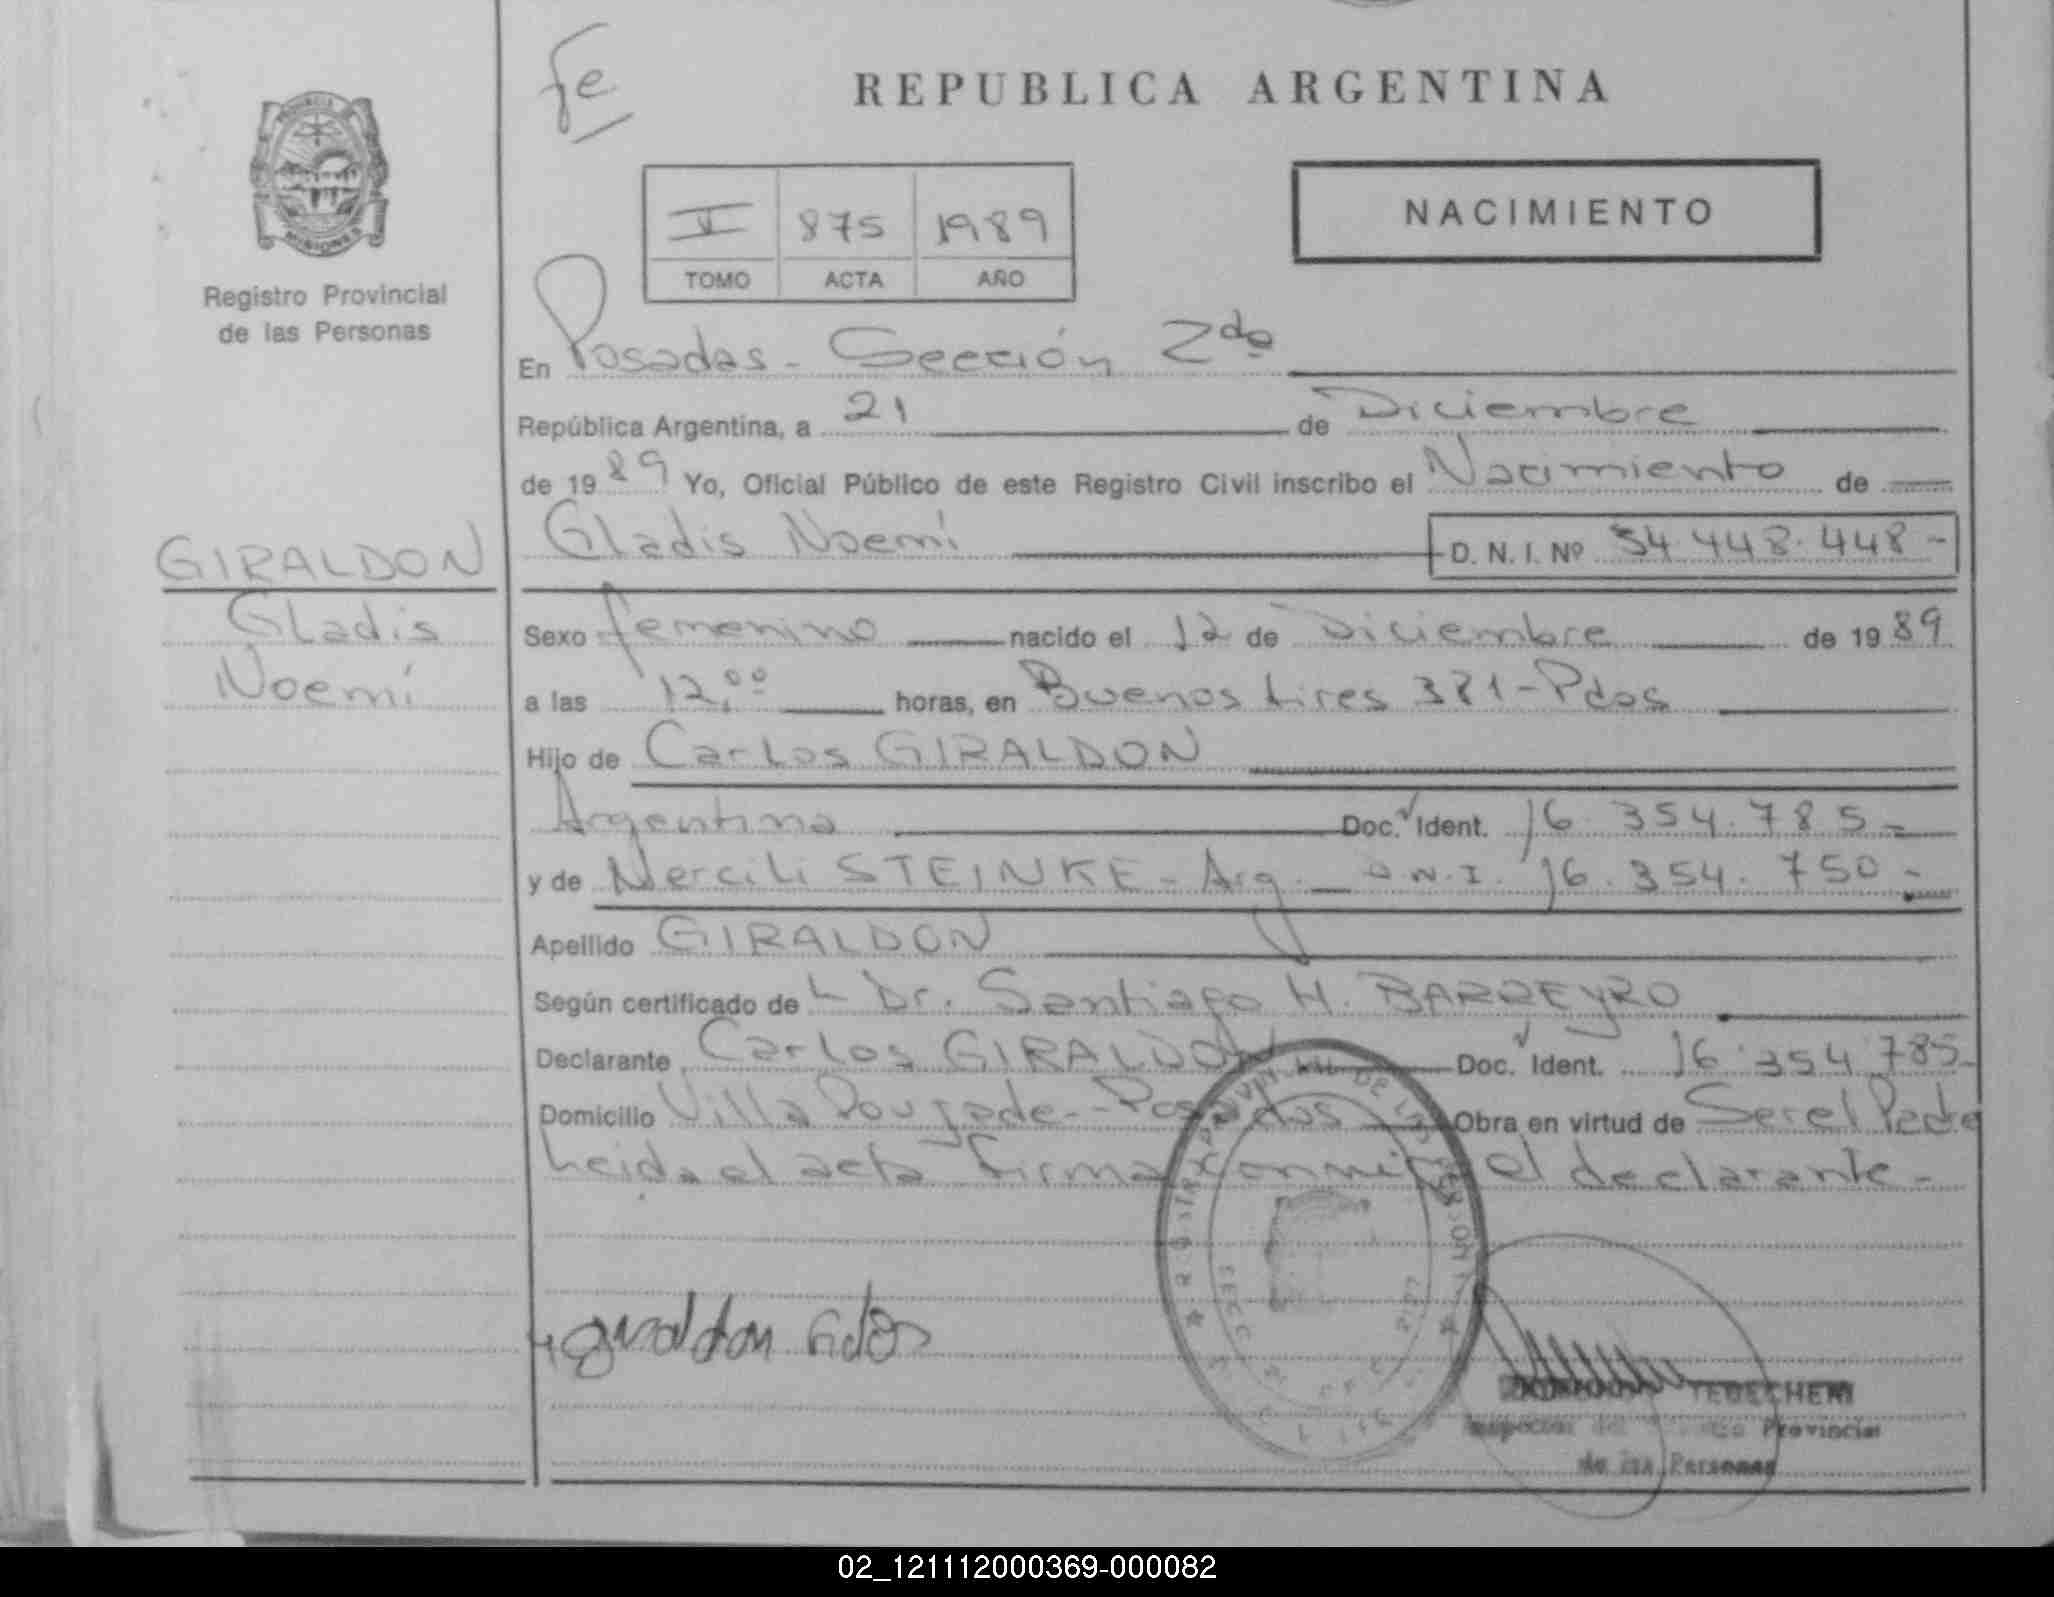 REPUBLICA ARGENTINA
Fe
V 875 1989
TOMO ACTA AÑO
NACIMIENTO
MISIONES
Registro Provincial
de las Personas
GIRALDON
Gladis
Noemí
En Posadas - Sección 2da
República Argentina, a 21 de Diciembre
de 1989 Yo, Oficial Público de este Registro Civil inscribo el Nacimiento de
Gladis Noemí D. N. I. Nº 34.448.448-
Sexo femenino nacido el 12 de Diciembre de 1989
a las 12,00 horas, en Buenos Aires 381-Pdas
Hijo de Carlos GIRALDON
Argentina Doc. Ident. 16.354.785-
y de Nercili STEINKE - Arg. - D.N.I. 16.354.750-
Apellido GIRALDON
Según certificado de L Dr. Santiago H. BARREYRO
Declarante Carlos GIRALDON Doc. Ident. 16.354.785-
Domicilio Villa Poujade - Posadas Obra en virtud de Ser el Padre
Leida el acta firma conmigo el declarante -
Giraldon Carlos
TEDECHEM
Inspector del Provincial
de las Personas
02_121112000369-000082